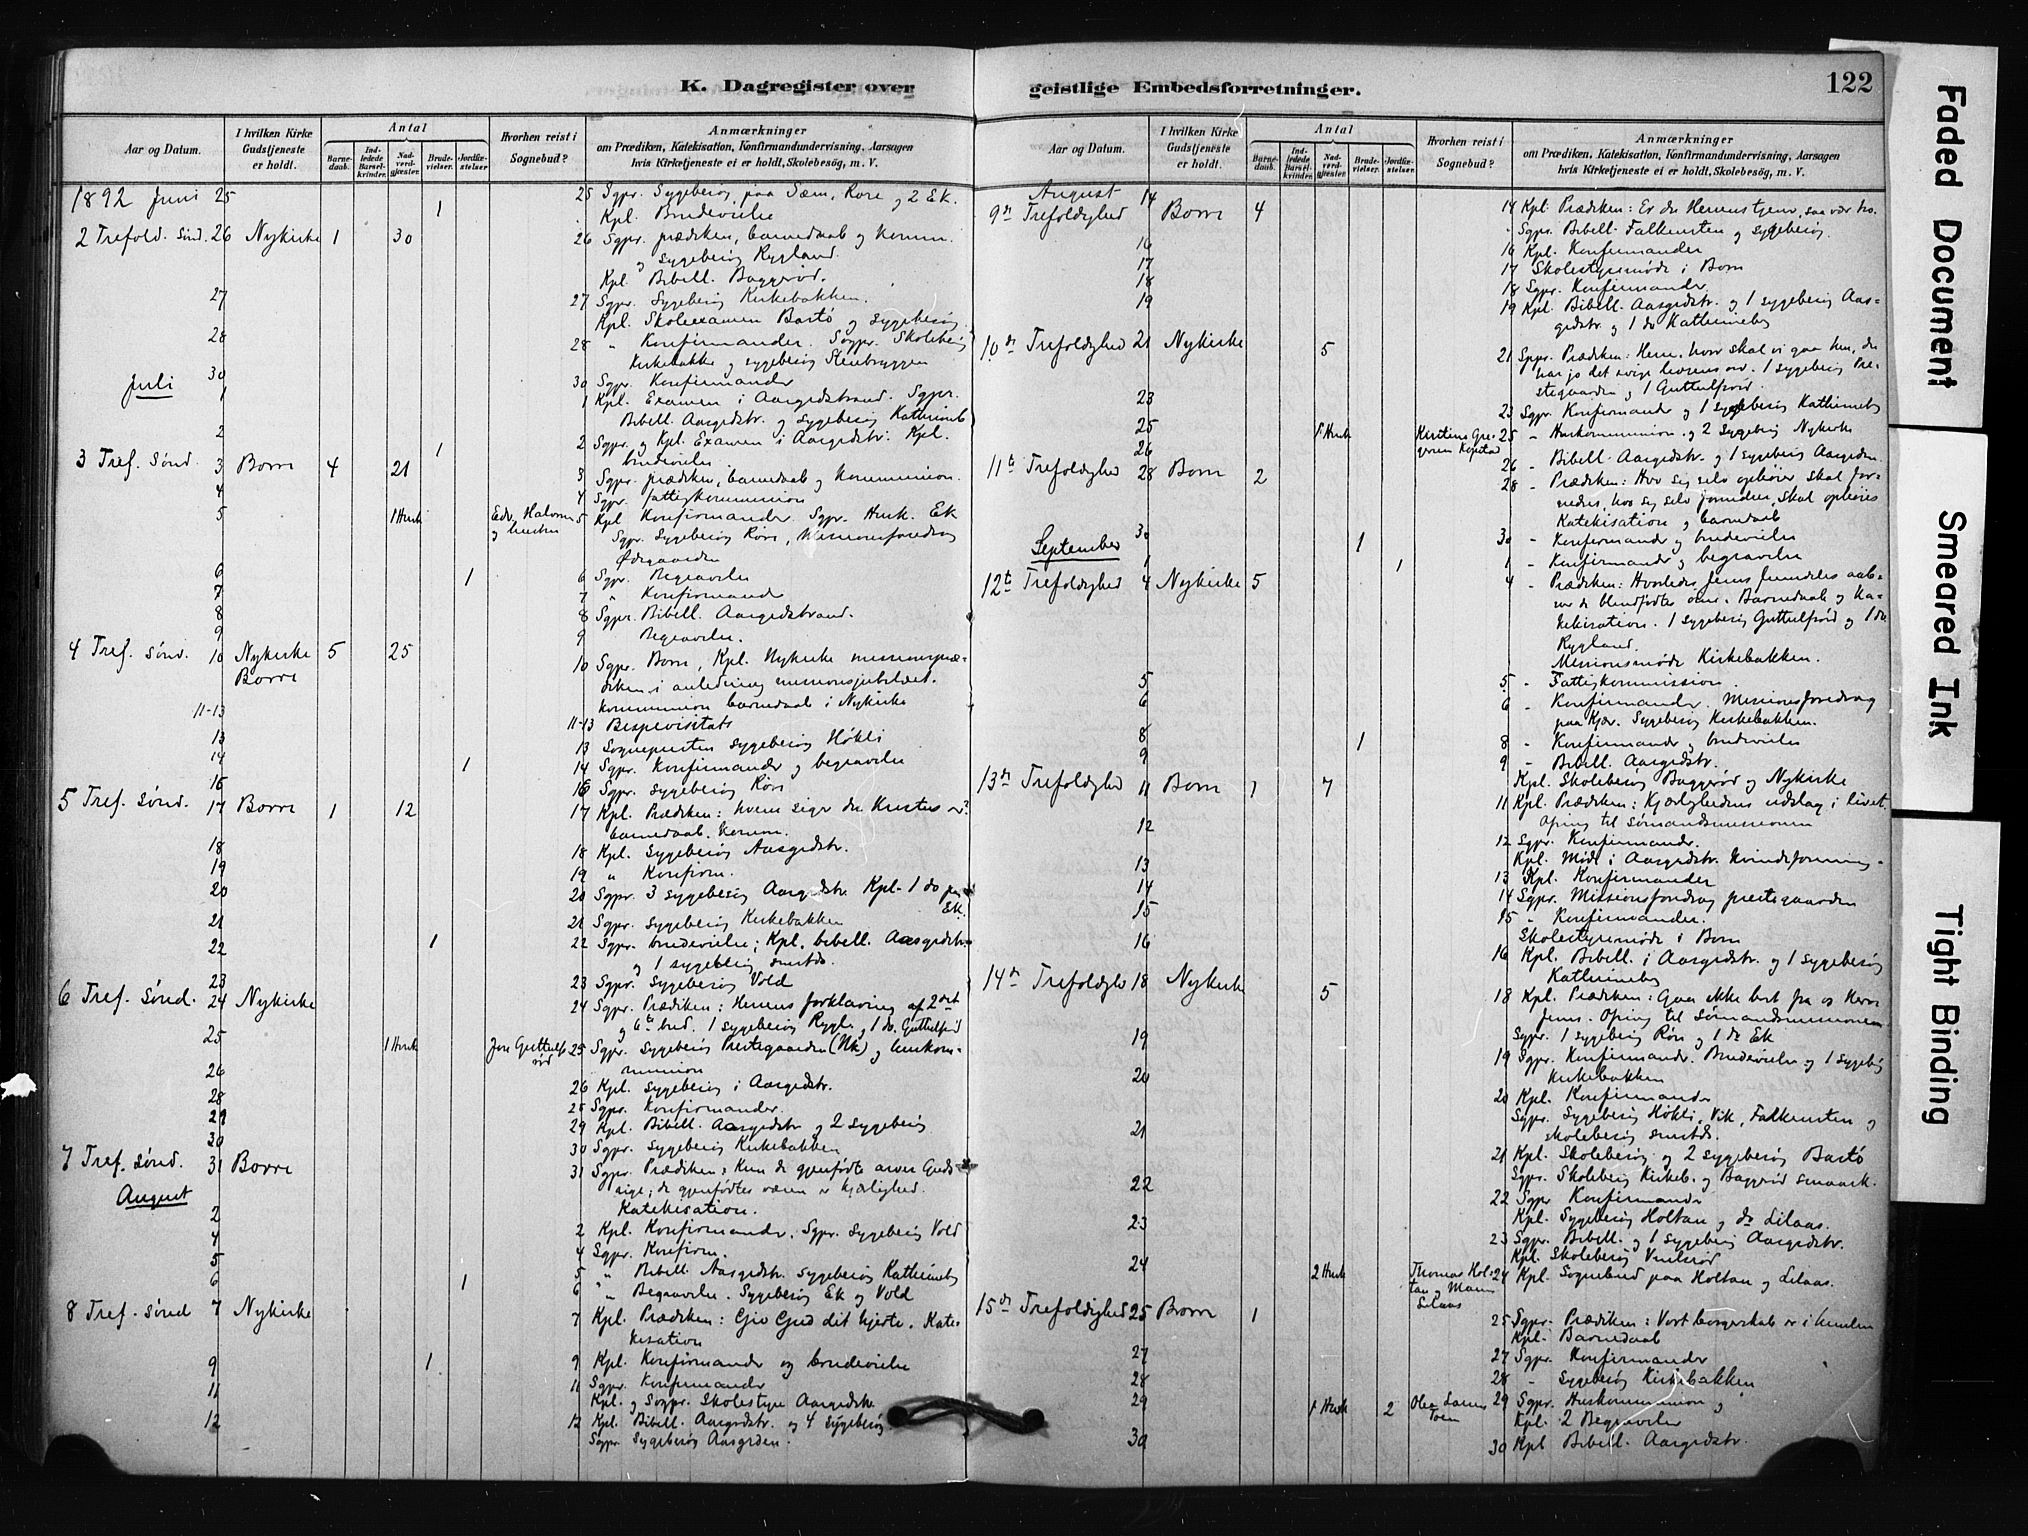 K. Dagregister over
Aar og Datum.
I hvilken Kirke Gudstjeneste er holdt.
Antal
Barne-daab.
Ind-ledede Barsel-kvinder.
Nad-verd-gjæster.
Brude-vielser.
Jordfæ-stelser
Hvorhen reist i Sognebud?
Anmærkninger
om Prædiken, Katekisation, Konfirmandundervisning, Aarsagen
hvis Kirketjeneste ei er holdt, Skolebesög, m. V.
1892 Juni 25 1 25 Sgpr. Sygebesøg paa Sem, Rore og 2 Ek.
Kpl. Brudevielse
2 Trefold. Sønd. 26 Nykirke 1 30 26 Sgpr. prædiken, barnedaab og komm.
og sygebesøg Rygland.
Kpl. Bibell. Baggerød.
27 27 Sgpr. Sygebesøg Kirkebakken.
Kpl. Skoleexamen Bastø og sygebesøg
28 28 " Konfirmander. Sogpr. Skolebesøg
Kirkebakke og sygebesøg Stenbryggen
30 30 Sgpr. Konfirmander
Juli 1 1 Kpl. Examen i Aasgdstrand. Sgpr.
Bibell. Aasgdstr. og sygebesøg
2 1 2 Sgpr. og Kpl. Examen i Aasgdstr. Kpl.
brudevielse
3 Tref. Sønd. 3 Borre 4 21 3 Sgpr. prædiken, barnedaab og kommunion.
4 4 Sgpr. fattigkommission
5 1 Husk Edv. Halvorsen og hustru 5 Kpl Konfirmander. Sgpr. Husk. Ek
Sgpr. Sygebesøg Rørs, Missionsforedrag
Ødegaarden
6 1 6 Sgpr. Begravelse
7 7 " Konfirmander
8 8 Sgpr. Bibell. Aasgdstrand.
9 9 Begravelse.
4 Tref. Sønd. 10 Nykirke 5 25 10 Sgpr. Borre, Kpl. Nykirke missionspræ-
Borre
diken i anledning missionsjubilæet.
kommunion barnedaab i Nykirke
11-13 11-13 Bispevisitats
13 13 Sognepresten sygebesøg Høkli
14 1 14 Sgpr. Konfirmander og begravelse
16 16 Sgpr. sygebesøg Rørs
5 Tref. Sønd. 17 Borre 1 12 17 Kpl. Prædiken: hvem siger du Kristus er?
barnedaab. komm.
18 18 Kpl. sygebesøg Aasgdstr.
19 19 " Konfirm.
20 20 Sgpr. 3 sygebesøg Aasgdstr. Kpl. 1 do paa
Ek.
21 21 Sgpr. sygebesøg Kirkebakken
22 1 22 Sgpr. brudevielse; Kpl. bibell. Aasgdstr.
og 1 sygebesøg smstds.
23 23 Sgpr. Sygebesøg Vold
6 Tref. Sønd. 24 Nykirke 24 Sgpr. Prædiken: Herrens forklaring af 2det
og 6te bud. 1 sygebesøg Rygl. og 1 do. Guttulfsrød
25 1 Husk Jon Guttulfsrød 25 Sgpr. sygebesøg Prestegaarden (Nk) og huskom-
munion
26 26 Kpl. sygebesøg i Aasgdstr.
28 28 Sgpr. Konfirmander.
29 29 Kpl. Bibell. Aasgdstr. og 2 sygebesøg
30 30 Sgpr. sygebesøg Kirkebakken
7 Tref. Sønd. 31 Borre 31 Sgpr. Prædiken: Kun de gjenfødte arver Guds
rige; de gjenfødtes væsen er kjærlighed.
Katekisation.
August
2 2 Kpl. Konfirmander. Sgpr. sygebesøg Vold
4 4 Sgpr. Konfirm.
5 5 " Bibell. Aasgdstr. sygebesøg
6 1 6 " Begravelse. Sygebesøg Ek og Vold
8 Tref. Sønd 7 Nykirke 7 Kpl. Prædiken: Giv Gud dit hjerte. Kate-
kisation
9 1 9 Kpl. Konfirmander og brudevielse
11 11 Sgpr. Konfirmander
Kpl. og Sogpr. Skolestyre Aasgdstr.
12 12 Kpl. Bibell. Aasgdstr. og 4 sygebesøg
Sgpr Sygebesøg Aasgrden.
geistlige Embedsforretninger.
122
Aar og Datum.
I hvilken Kirke Gudstjeneste er holdt.
Antal
Barne-daab.
Ind-ledede Barsel-kvinder.
Nad-verd-gjæster.
Brude-vielser.
Jordfæ-stelser.
Hvorhen reist i Sognebud?
Anmærkninger
om Prædiken, Katekisation, Konfirmandundervisning, Aarsagen
hvis Kirketjeneste ei er holdt, Skolebesög, m. V.
August
9de Trefoldighed 14 Borre 4 14 Kpl. Prædiken: Er du Herrens tjener, saa vær tro.
Sgpr. Bibell. Falkensten og sygebesøg.
16 16 Kpl. Konfirmander
17 17 Skolestyremøde i Borre
18 18 Sgpr. Konfirmander
19 19 Kpl. Bibell. Aasgdstr. og 1 sygebesøg Aas-
gdstr og 1 do
10de Trefoldighed 21 Nykirke 5 21 Sgpr. Prædiken: Herre, hvor skal vi gaa hen, du
har jo det evige livsens ord. 1 sygebesøg Pre-
stegaarden og 1 Guttulfsrød.
23 23 Sgpr. Konfirmander og 1 sygebesøg
25 1 Husk 25 - Huskommunion og 2 sygebesøg Nykirke
26 26 - Bibell. Aasgdstr. og 1 sygebesøg Aasgrden
11te Trefoldighed 28 Borre 2 28 - Prædiken: Hvo sig selv ophøier skal for-
nedres, hvo sig selv fornedrer, skal ophøies
Katekisation og barnedaab
30 1 30 - Konfirmander og brudevielse
September 1 1 1 - Konfirmander og begravelse
12te Trefoldighed 4 Nykirke 5 4 - Prædiken: Hvorledes Jesus fremdeles aab-
ner de blindfødtes øine. Barnedaab og ka-
tekisation. 1 sygebesøg Guttulfsrød og 1 do
Rygland.
Missionsmøde Kirkebakken.
5 5 - Fattigkommission
6 6 - Konfirmander. Missionsforedrag
paa Kjær. Sygebesøg Kirkebakken.
8 1 8 - Konfirmander og brudevielse
9 9 - Bibell. Aasgdstr.
Kpl. Skolebesøg Baggerød og Nykirke
13de Trefoldighed 11 Borre 1 7 11 Kpl. Prædiken: Kjærlighedens udslag i livet.
Ofring til sømandsmissionen
12 12 Sgpr. Konfirmander.
Kpl. Møde i Aasgdstr. Kvindeforening.
13 13 Kpl. Konfirmander
14 14 Sgpr. Missionsforedrag prestegaarden
15 15 " Konfirmander.
Skolestyremøde i Borre
16 16 Kpl. Bibell. i Aasgdstr. og 1 sygebesøg
14de Trefoldighed 18 Nykirke 5 18 Kpl. Prædiken: Gaa ikke bort fra os Herre
Jesus. Ofring til Sømandsmissionen
Sgpr. 1 sygebesøg Rørs og 1 do Ek
19 19 Sgpr. Konfirmander. Brudevielse og 1 sygebesøg
Kirkebakken
20 20 Kpl. Konfirmander
Sgpr. Sygebesøg Høkli, Vik, Falkensten og
skolebesøg smstds.
21 21 Kpl. Skolebesøg og 2 sygebesøg Bastø
Sgpr. Skolebesøg Kirkeb. og Baggerød smaask.
22 22 Sgpr Konfirmander
Kpl. Sygebesøg Holtan og do Lilaas.
23 23 Sgpr. Bibell. og 1 sygebesøg Aasgdstr.
Kpl. Skolebesøg
24 2 Husk Thomas Hol-tan og Maren Lilaas 24 Kpl. Sognebud paa Holtan og Lilaas.
15de Trefoldighed 25 Borre 1 25 Sgpr. Prædiken: Vort borgerskab er i himlen
Kpl. Barnedaab
27 27 Sgpr. Konfirmander
28 28 - Sygebesøg Kirkebakken
29 1 Husk 2 29 Sgpr. Huskommunion og
Kpl. 2 Begravelser
30 30 Kpl Bibell. Aasgdstr.
Faded Document
Smeared Ink
Tight Binding